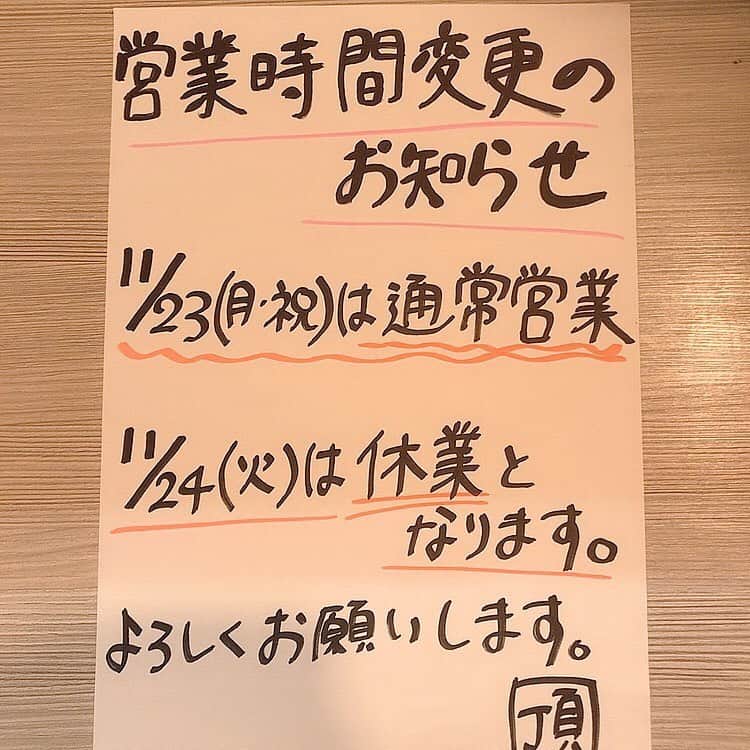 営業時間変更の
お知らせ
11/23(月・祝)は通常営業
11/24(火)は休業と
なります。
よろしくお願いします。
頂